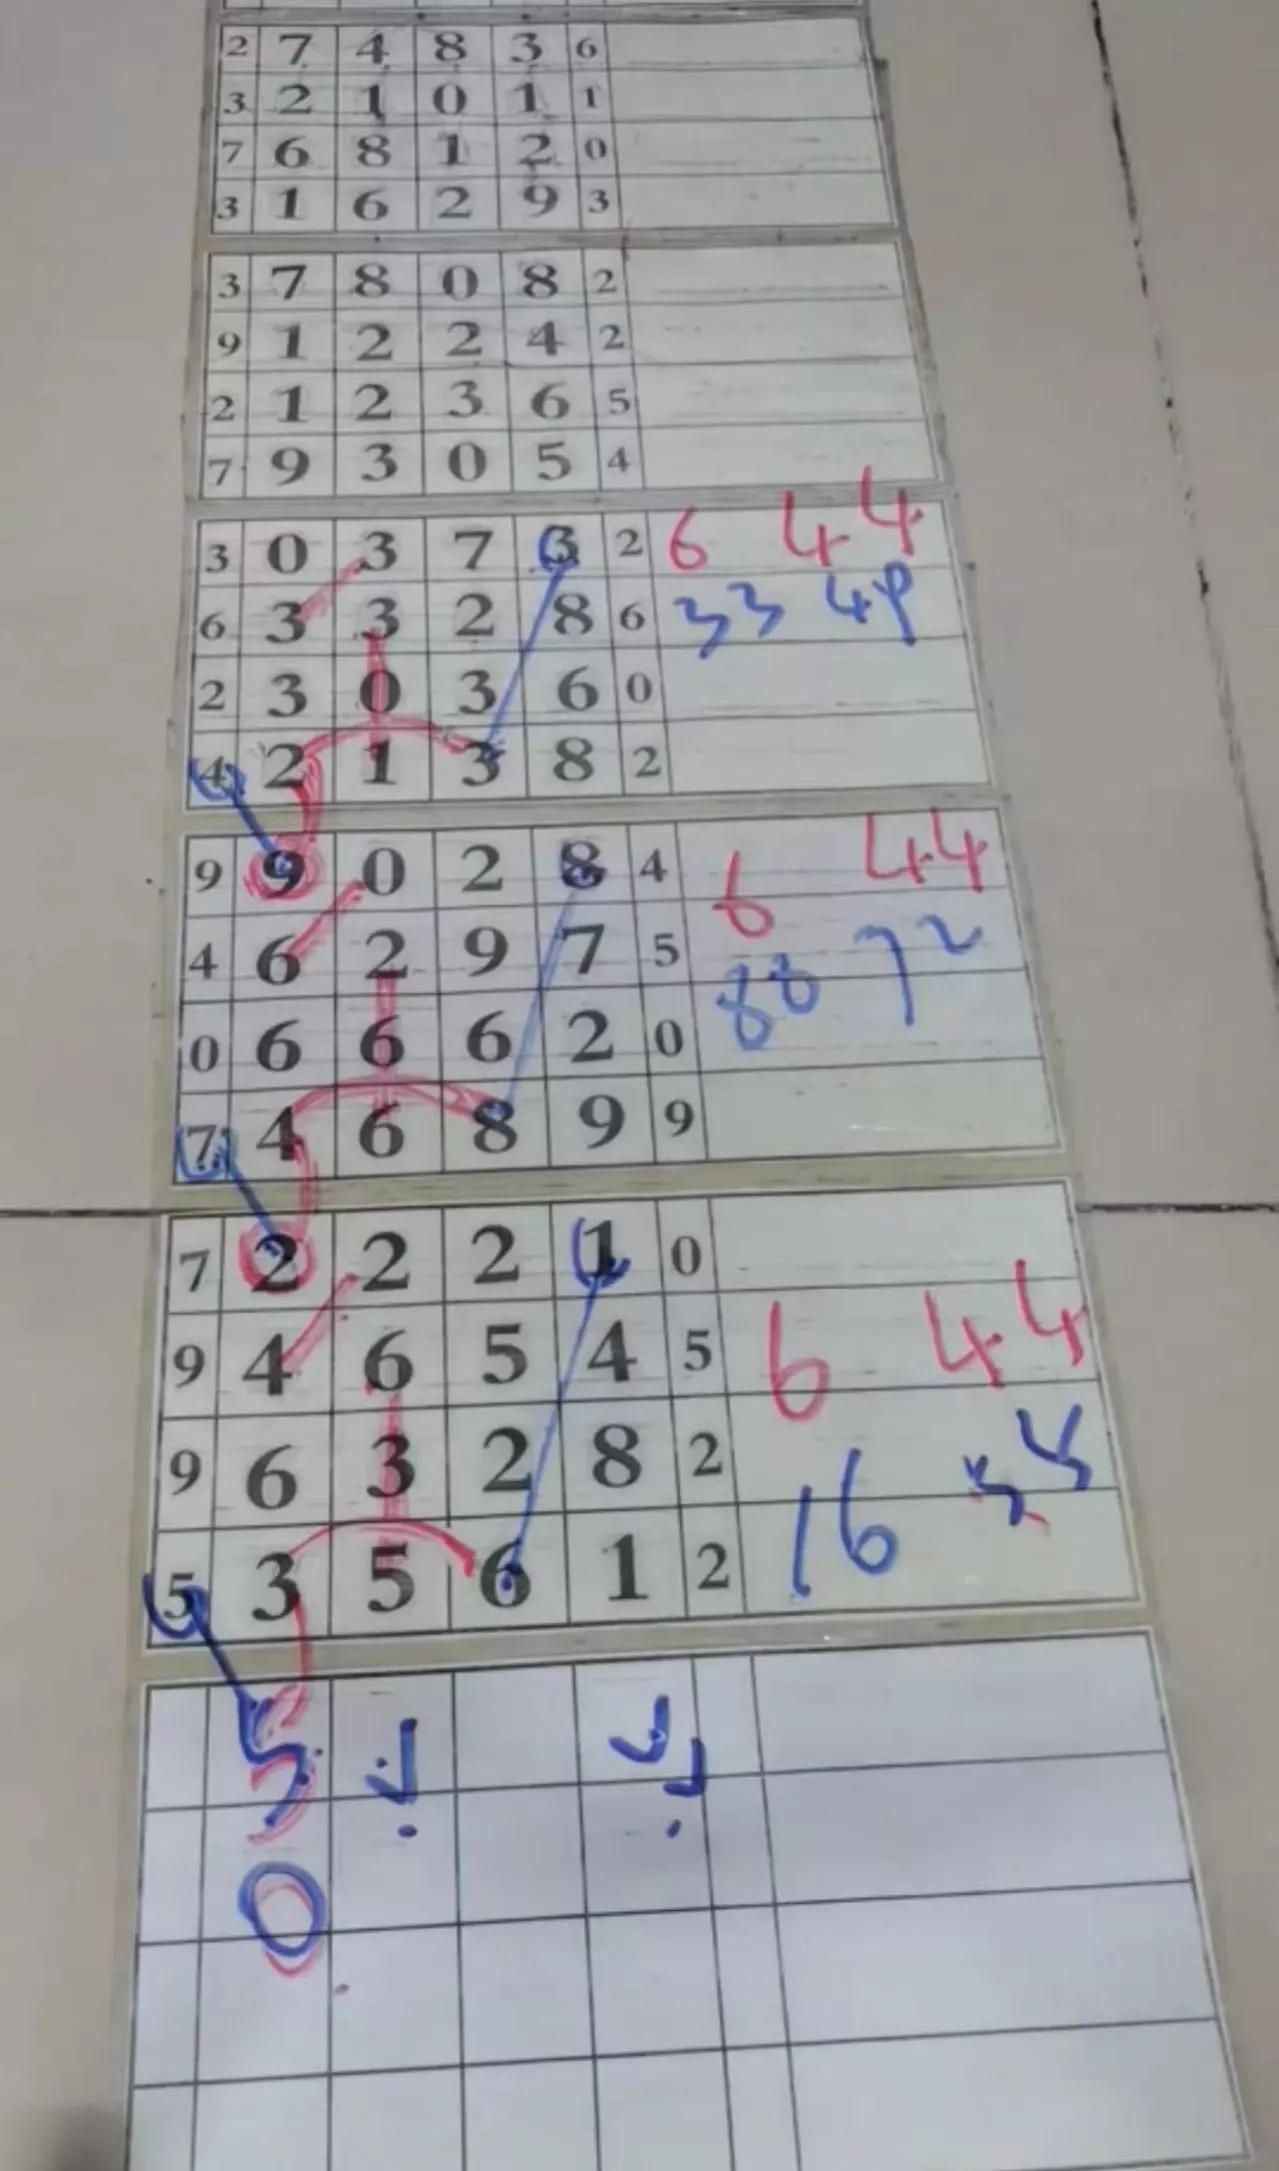 2 7 4 8 3 6
3 2 1 0 1 1
7 6 8 1 2 0
3 1 6 2 9 3
3 7 8 0 8 2
9 1 2 2 4 2
2 1 2 3 6 5
7 9 3 0 5 4
3 0 3 7 3 2 6 44
6 3 3 2 8 6 33 49
2 3 0 3 6 0
4 2 1 3 8 2
9 9 0 2 8 4 6 44
4 6 2 9 7 5 88 72
0 6 6 6 2 0
7 4 6 8 9 9
7 2 2 2 1 0
9 4 6 5 4 5 6 44
9 6 3 2 8 2
5 3 5 6 1 2 16
5
0